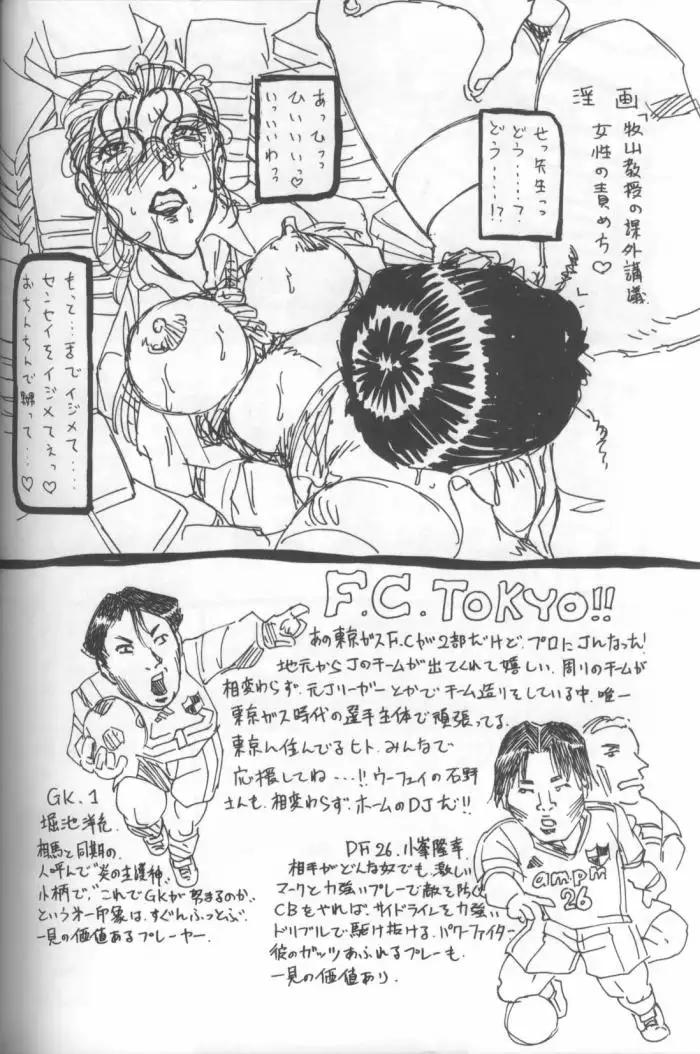 画「牧山教授の課外講議
女性の責めち♡
淫
せっ先生っ
どう‥‥?
どう‥‥!?
あっひっっ
ひいいいっ♡
いっいいわっっ
もって‥‥までイジメて‥‥
センセイをイジメてぇっ♡
おちんちんで嬲って‥‥♡
F.C.TOKYO!!
あの東京ガスF.Cが2部だけど、プロにJんなった!
地元からJのチームが出てくれて嬉しい。周りのチームが
相変わらず、元Jリーガーとかでチーム造りをしている中、唯一
東京ガス時代の選手主体で頑張ってる。
東京に住んでるヒト、みんなで
応援してね‥‥!! ウーフェイの石野
さんも、相変わらずホームのDJだ!!
GK.1
堀池洋充
相馬と同期の
人呼んで"炎の守護神"
小柄で、"これでGKが努まるのか"
という才一印象は、すぐんふっとぶ
一見の価値あるプレーヤー。
DF26.小峯隆幸
相手がどんな奴でも、激しい
マークと力強いプレーで敵を防ぐ
CBをやれば、サイドラインを力強い
ドリブルで駆け抜ける、パワーファイター
彼のガッツあふれるプレーも
一見の価値あり.
am.pm
26